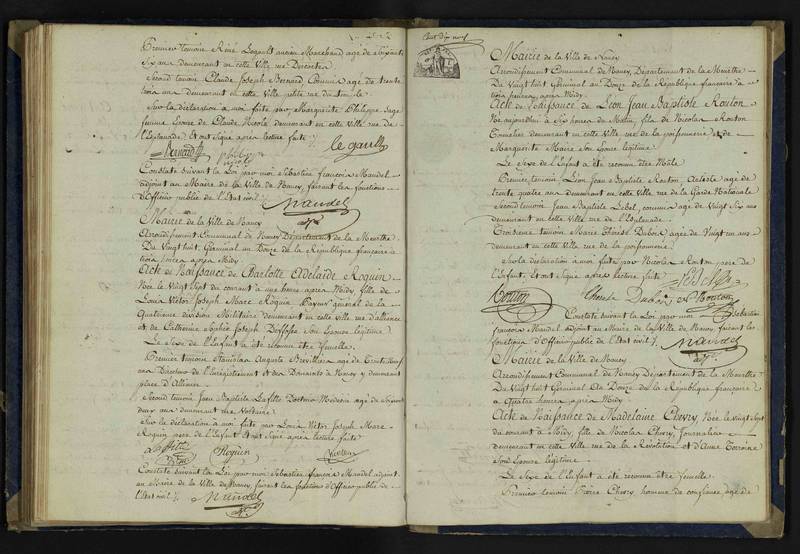 Premier temoin René Legault ancien Marchand agé de soixante
six ans demeurant en cette Ville rue Descartes
Second temoin Claude Joseph Bernard Commis agé de trente
trois ans demeurant en cette Ville petite rue du
Sur la déclaration à moi faite par Marguerite Philippe Sage
femme Epouse de Claude Nicole demeurant en cette Ville rue de
l'Esplanade. Et ont Signé après lecture faite ·/.
Bernard
legault
Constaté suivant la Loi par moi Sébastien françois Mandel
adjoint au Maire de la Ville de Nancy, faisant les fonctions
d'Officier public de l'Etat civil ·/.
Mandel
Mairie de la Ville de Nancy
Arrondissement Communal de Nancy Département de la Meurthe.
Du Vingt huit Germinal an Douze de la République française à
trois heures après Midy
Acte de Naissance de Charlotte Adelaïde Roquin
Née le Vingt Sept du courant à une heure après Midy, fille de
Louis Victor Joseph Marc Roquin Payeur général de la
Quatrième division Militaire demeurant en cette Ville rue d'alliance
et de Catherine Sophie Joseph son Epouse légitime
Le Sexe de l'Enfant a été reconnu être femelle.
Premier temoin Stanislas Auguste agé de Trente Neuf
ans Directeur de l'Enregistrement et des Domaines à Nancy y demeurant
place d'Alliance
Second temoin Jean Baptiste Lafitte Docteur Médecin agé de Soixante
deux ans demeurant rue Voltaire
Sur la déclaration à moi faite par Louis Victor Joseph Marc
Roquin père de l'Enfant. Et ont Signé après lecture faite
Lafitte
Roquin
Constaté suivant la Loi par moi Sébastien françois Mandel adjoint
au Maire de la Ville de Nancy, faisant les fonctions d'Officier public de
l'Etat civil ·/.
Mandel
Cent dix neuf
Mairie de la Ville de Nancy
Arrondissement Communal de Nancy, Département de la Meurthe
Du Vingt huit Germinal an Douze de la République française à
trois heures après Midy
Acte de Naissance de Léon Jean Baptiste Routon
Né aujourd'hui à Six heures du Matin, fils de Nicolas Routon
Tonnelier demeurant en cette Ville rue de la poissonnerie et de
Marguerite Maire Son Epouse légitime
Le Sexe de l'Enfant a été reconnu être Mâle
Premier temoin Léon Jean Baptiste Routon agé de
trente quatre ans demeurant en cette Ville rue de la Garde Nationale
Second temoin Jean Baptiste Lebel, commis agé de Vingt Six ans
demeurant en cette Ville rue de l'Esplanade.
Troisieme temoin Marie Thérèse Dubois agée de Vingt un ans
demeurant en cette Ville rue de la poissonnerie.
Sur la déclaration à moi faite par Nicolas Routon père de
l'Enfant. Et ont Signé après lecture faite
Routon
Routon
Constaté suivant la Loi par moi Sébastien
françois Mandel adjoint au Maire de la Ville de Nancy faisant les
fonctions d'Officier public de l'Etat civil ·/.
Mandel
Mairie de la Ville de Nancy
Arrondissement Communal de Nancy Département de la Meurthe
Du Vingt huit Germinal An Douze de la République française
à Quatre heures après Midy
Acte de Naissance de Madelaine Chevry, Née le Vingt Sept
du courant à Midy fille de Nicolas Chevry, Journalier
demeurant en cette Ville rue de la Révolution et d'Anne
Son Epouse légitime
Le Sexe de l'Enfant a été reconnu être femelle
Premier temoin Pierre Chevry homme de confiance agé de